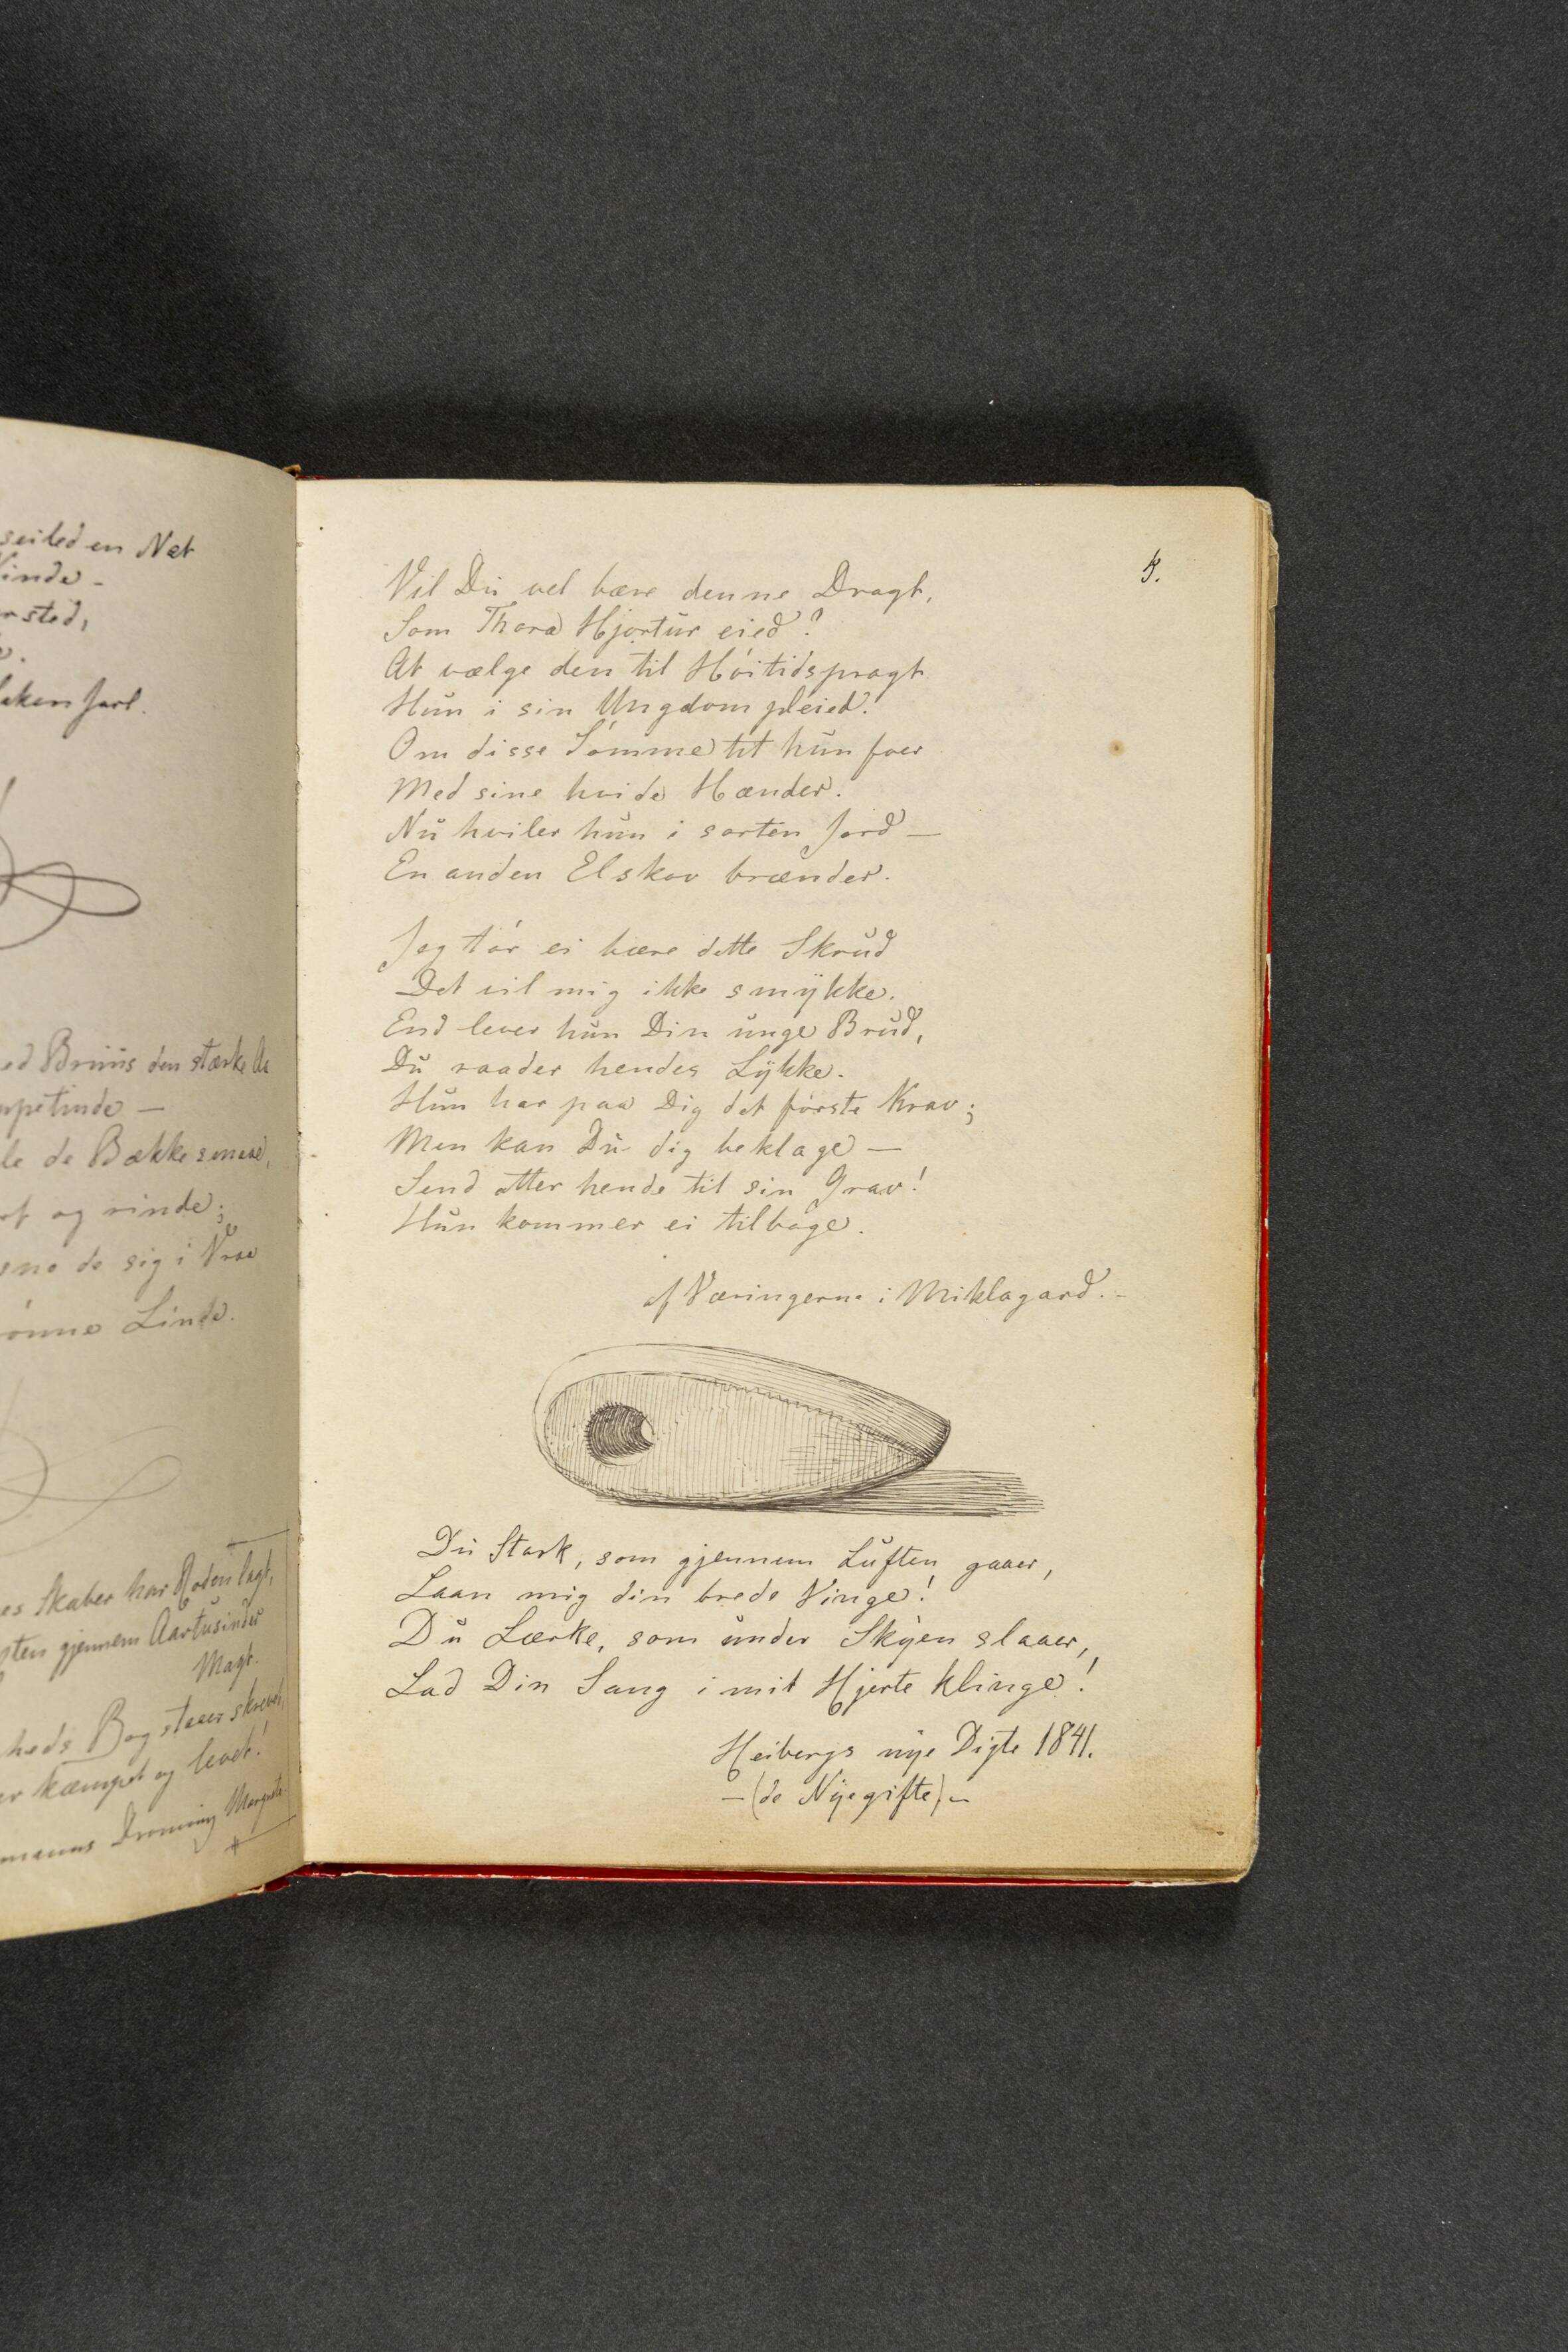 seiled en Nat
inde -
rsted,
aken Jarl.
ed Bruus den stærke
petinde —
le de Bække
t og rinde;
sno de sig i Vraa
ønne Linde.
es Skaber har Roden lagt,
sten gjennem Aartusinder
Magt.
heds Bog staaer skrevet,
er kæmpet og levet!
manns Dronning Margrete.
5.
Vil Du vel bære denne Dragt,
Som Thora Hjortur eied?
At vælge den til Høitidspragt
Hun i sin Ungdom pleied.
Om disse Sømme tit hun foer
Med sine hvide Hænder.
Nu hviler hun i sorten Jord —
En anden Elskov brænder.
Jeg tør ei bære dette Skrud
Det vil mig ikke smykke.
End lever hun Din unge Brud,
Du raader hendes Lykke.
Hun har paa Dig det første Krav;
Men kan Du dig beklage —
Send atter hende til sin Grav!
Hun kommer ei tilbage.
af Væringerne i Miklagard. -
Du Stork, som gjennem Luften gaaer,
Laan mig din brede Vinge!
Du Lærke, som under Skyen slaaer,
Lad Din Sang i mit Hjerte klinge!
Heibergs nye Digte 1841.
- (de Nygifte) -